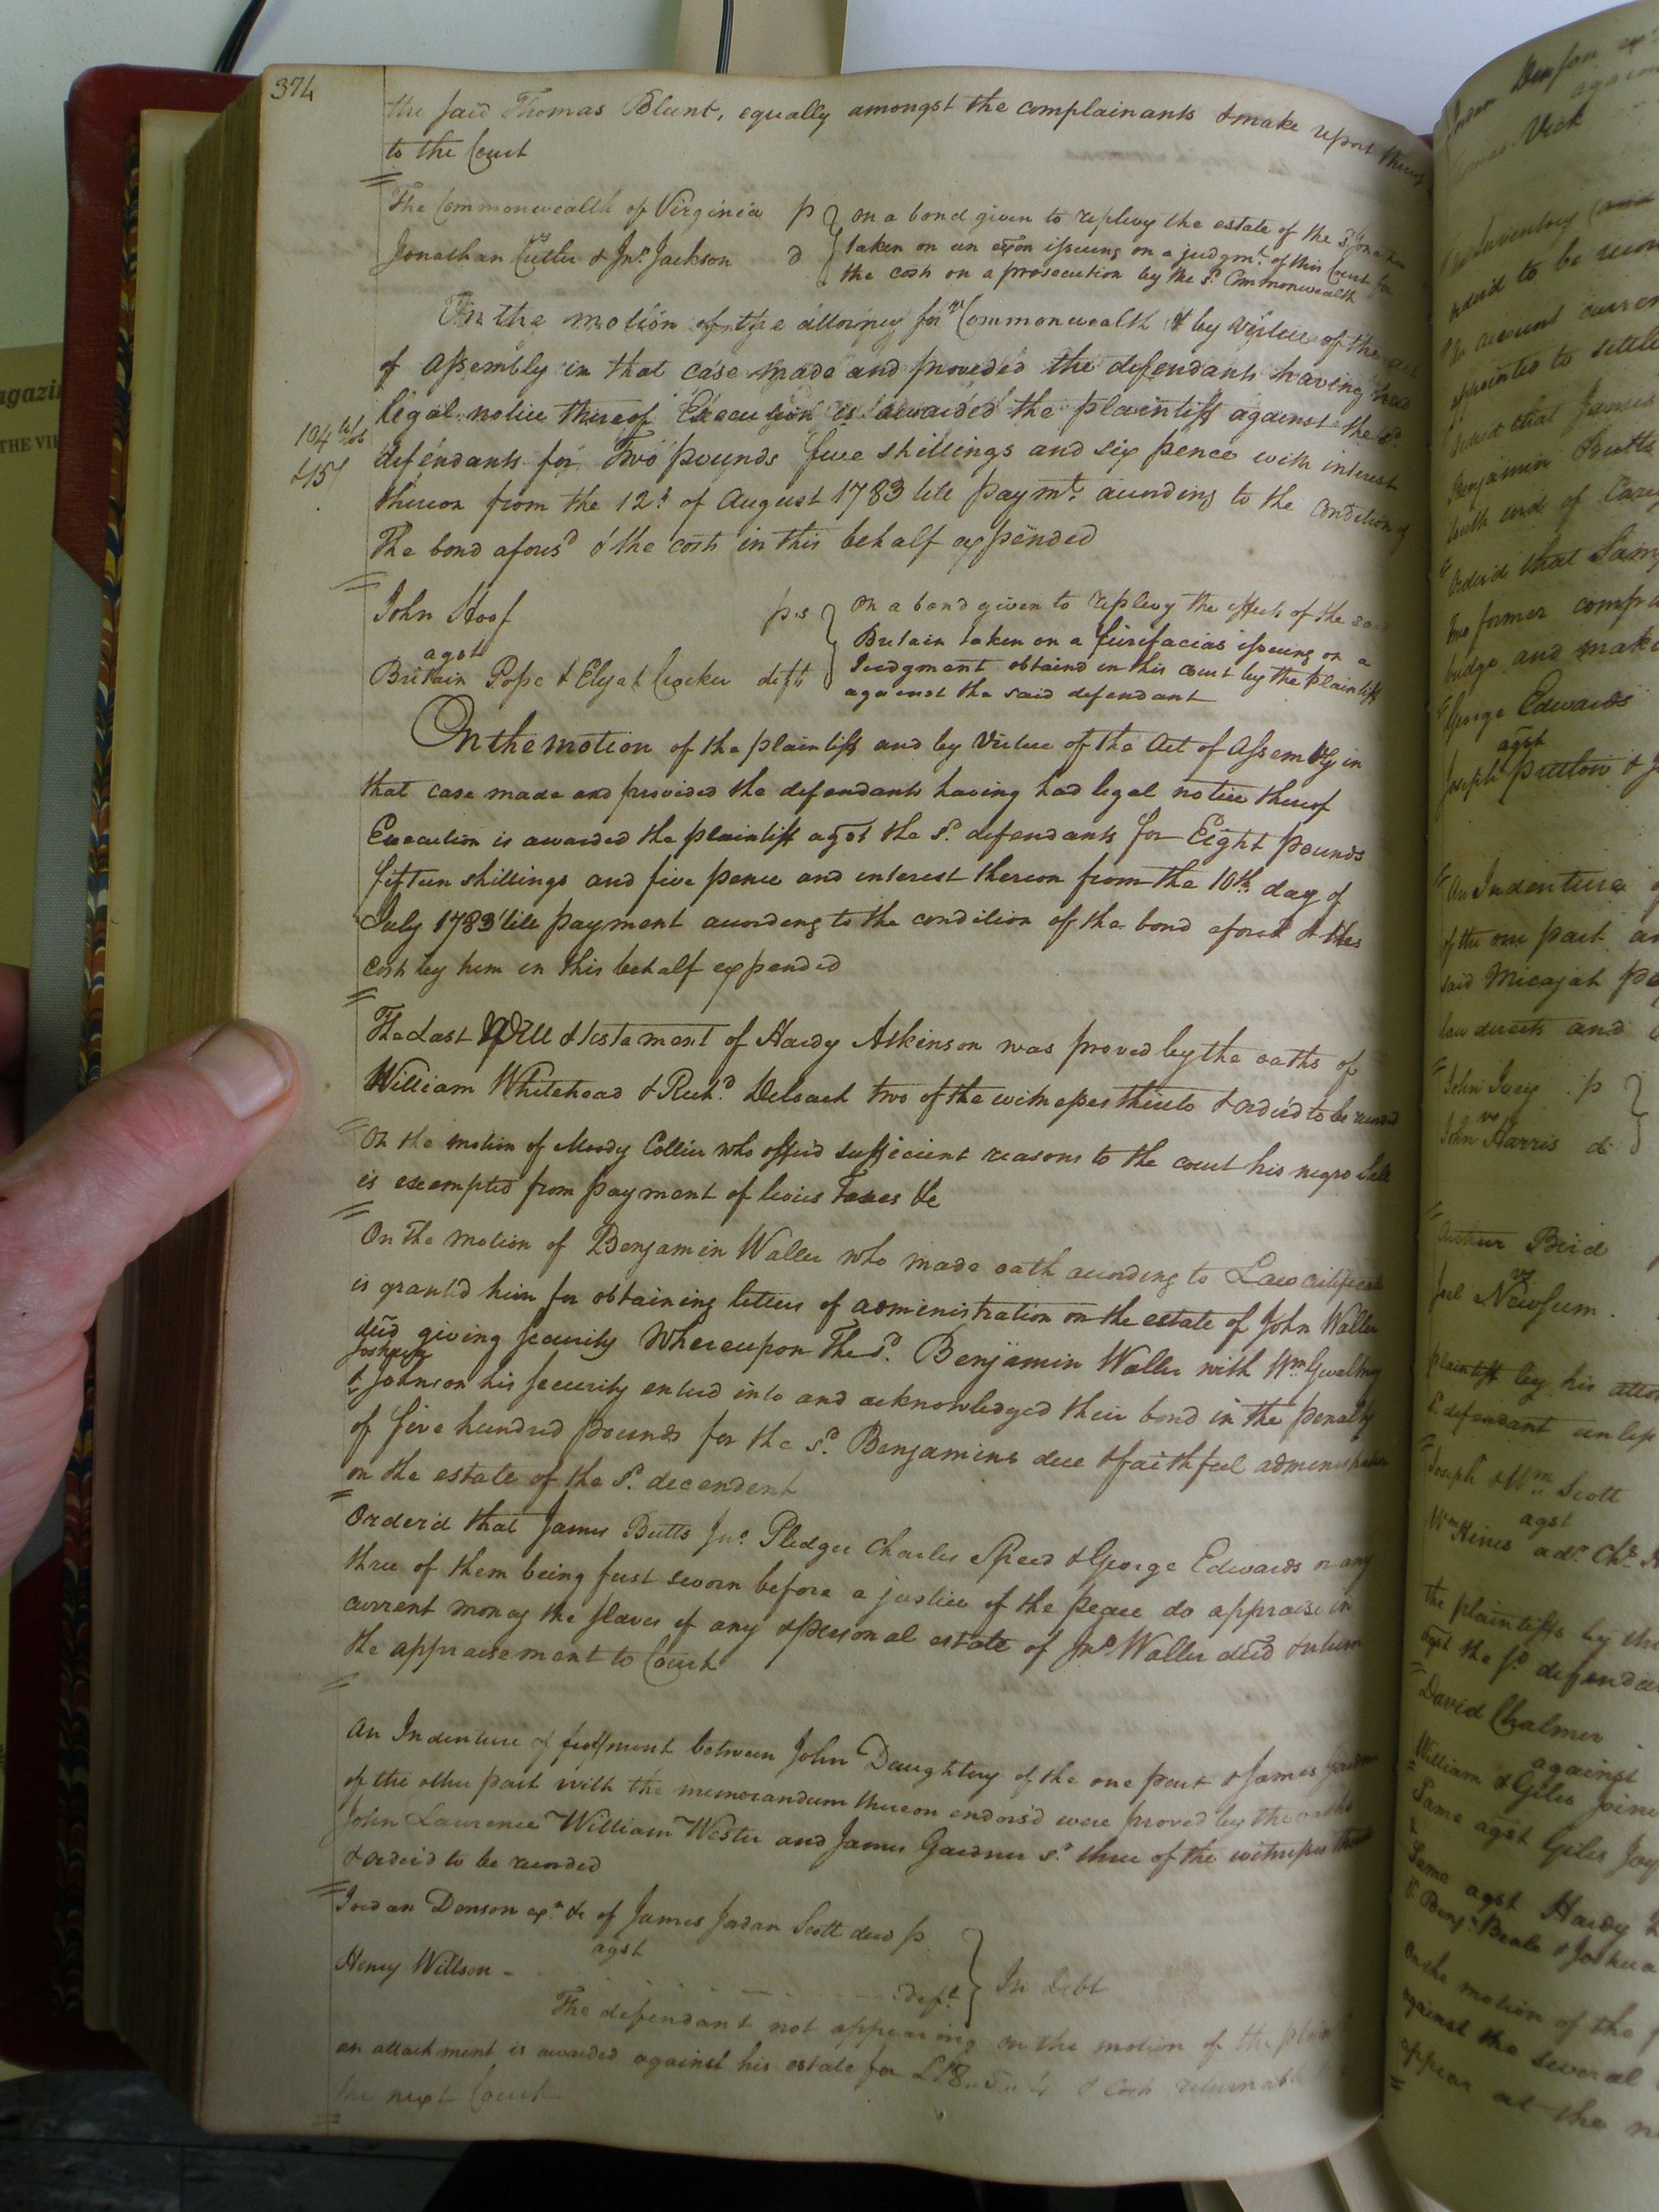 374
the said Thomas Blunt, equally amongst the complainants & make report thereof
to the Court
The Commonwealth of Virginia p
vs
Jonathan Cutler & Jno. Jackson d
on a bond given to replevy the estate of the sd. Jonathan
taken on an exōn issuing on a judgmt. of this Court for
the costs on a prosecution by the sd. Commonwealth
On the motion of the attorney for Commonwealth & by virtue of the act
of Assembly in that case made and provided the defendants having had
legal notice thereof Execution is awarded the plaintiff against the sd.
104
defendants for Two pounds five shillings and six pence with interest
thereon from the 12th of August 1783 till paymt. according to the condition of
The bond aforesd & the costs in this behalf expended
John Hoof pts
agst
Britain Pope & Elijah Crocker defts
on a bond given to replevy the effects of the said
Britain taken on a fierifacias issueing on a
Judgment obtained in this court by the plaintiff
against the said defendant
On the motion of the plaintiff and by virtue of the Act of Assembly in
that case made and provided the defendants having had legal notice thereof
Execution is awarded the plaintiff agst the sd. defendants for Eight pounds
fifteen shillings and five pence and interest thereon from the 10th day of
July 1783 till payment according to the condition of the bond aforesd & the
costs by him in this behalf expended
The Last Will & testament of Hardy Atkinson was proved by the oaths of
William Whitehead & Richd. Deloach two of the witnesses thereto & orderd to be recorded
On the motion of Moody Collier who offerd sufficient reasons to the court his negro
is exempted from payment of levies Taxes &c
On the motion of Benjamin Waller who made oath according to Law certificate
is granted him for obtaining letters of administration on the estate of John Waller
decd giving security Whereupon The sd. Benjamin Waller with Wm Gwaltney
Joshua
& Johnson his security enterd into and acknowledged their bond in the penalty
of five hundred pounds for the sd. Benjamins due & faithful administration
on the estate of the sd. decendent
Orderd that James Butts Jno. Pledger Charles Speed & George Edwards or any
three of them being first sworn before a justice of the peace do appraise in
current money the slaves if any & personal estate of Jno Waller decd & return
the appraisement to Court
An Indenture of feoffment between John Daughtery of the one part & James Gardner
of the other part with the memorandum thereon endorsd were proved by the oaths
John Lawrence William Wester and James Gardner sr. three of the witnesses thereto
& orderd to be recorded
Jordan Denson exr. &c of James Jordan Scott decd p
agst
Henry Willson - deft.
In Debt
The defendant not appearing on the motion of the plaint
an attachment is awarded against his estate for & costs returnable
the next Court
Vick
against
An Inventory
orderd to be recor
An account curren
appointed to settle
Orderd that James
Benjamin Butts
Orderd that
two former compa
bridge and make
George Edwards
agst
Joseph Pretlow & J
An Indenture
of the one part an
said Micajah
law directs and
John Ivey p
vs
John Harris d
Arthur Bird
vs
Joel Newsum
plaintiff by his attor
sd. defendant unless
Joseph & Wm Scott
agst
Wm Hines adr.
the plaintiffs by the
agst the sd defendan
David Chalmers
against
William & Giles Joine
Same agst Giles Joy
Same agst Hardy
& Benj. Beale & Joshua
On the motion of the p
against the several
appear at the n